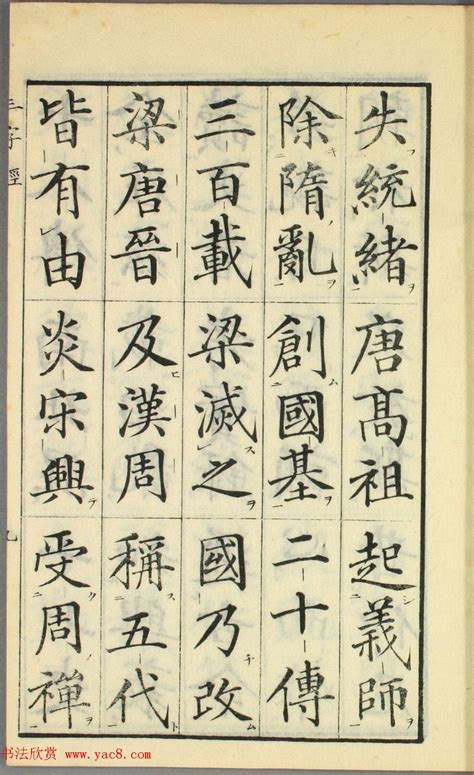 失統緒 唐高祖 起義師
除隋亂 創國基 二十傳
三百載 梁滅之 國乃改
梁唐晉 及漢周 稱五代
皆有由 炎宋興 受周禪
三字經
书法欣赏 www.yac8.com